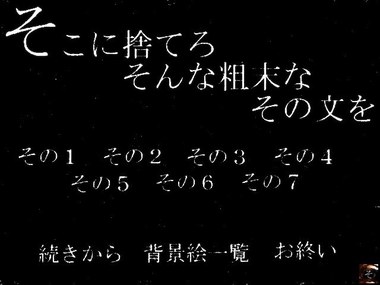 そこに捨てろ
そんな粗末な
その文を
その１　その２　その３　その４
その５　その６　その７
続きから　背景絵一覧　お終い
そ